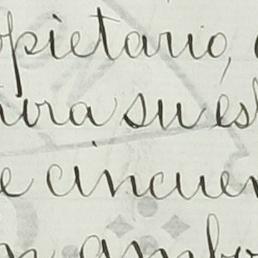 opietario,
ira su es
e cincuen
ambo